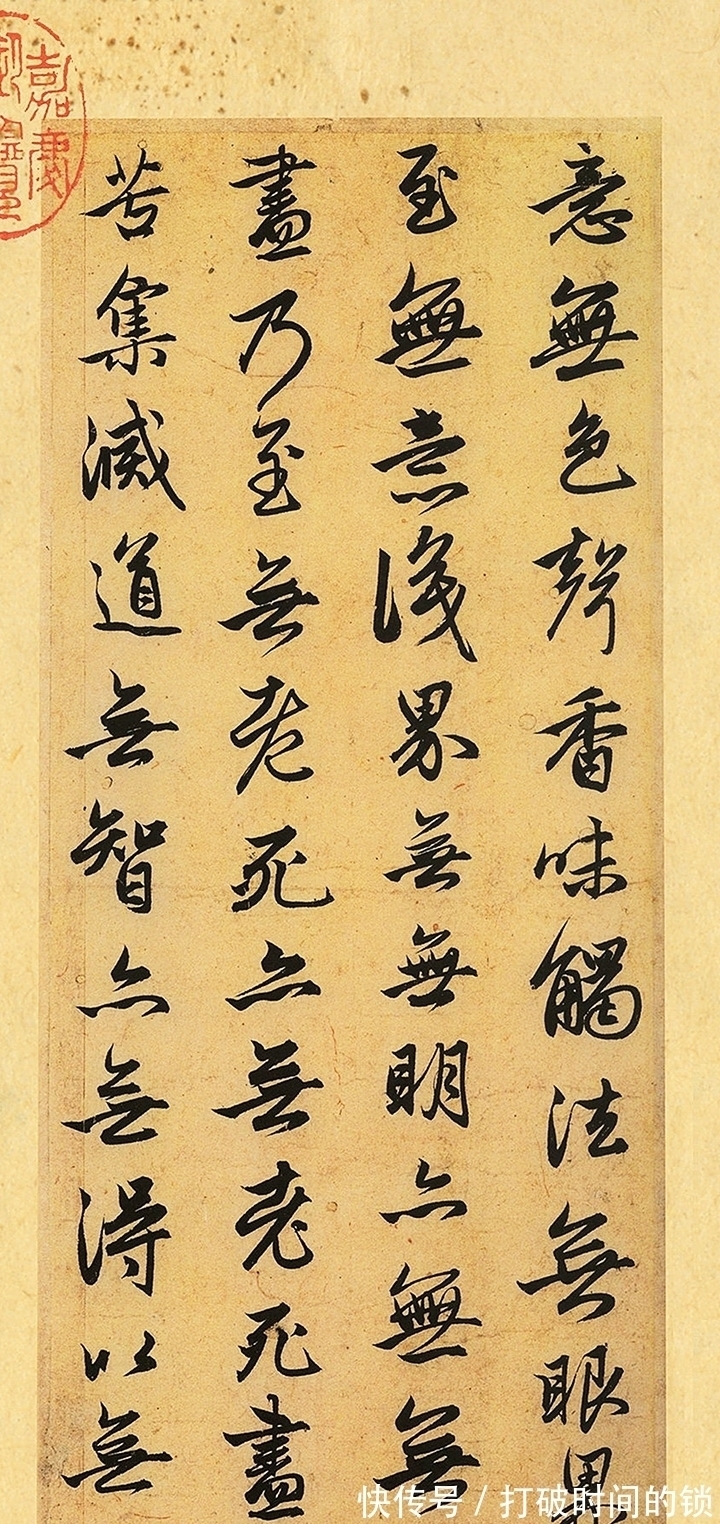 意無色聲香味觸法無眼界
至無意識界無無明亦無無
盡乃至無老死亦無老死盡
苦集滅道無智亦無得以無
嘉慶
御覽
快传号 / 打破时间的锁